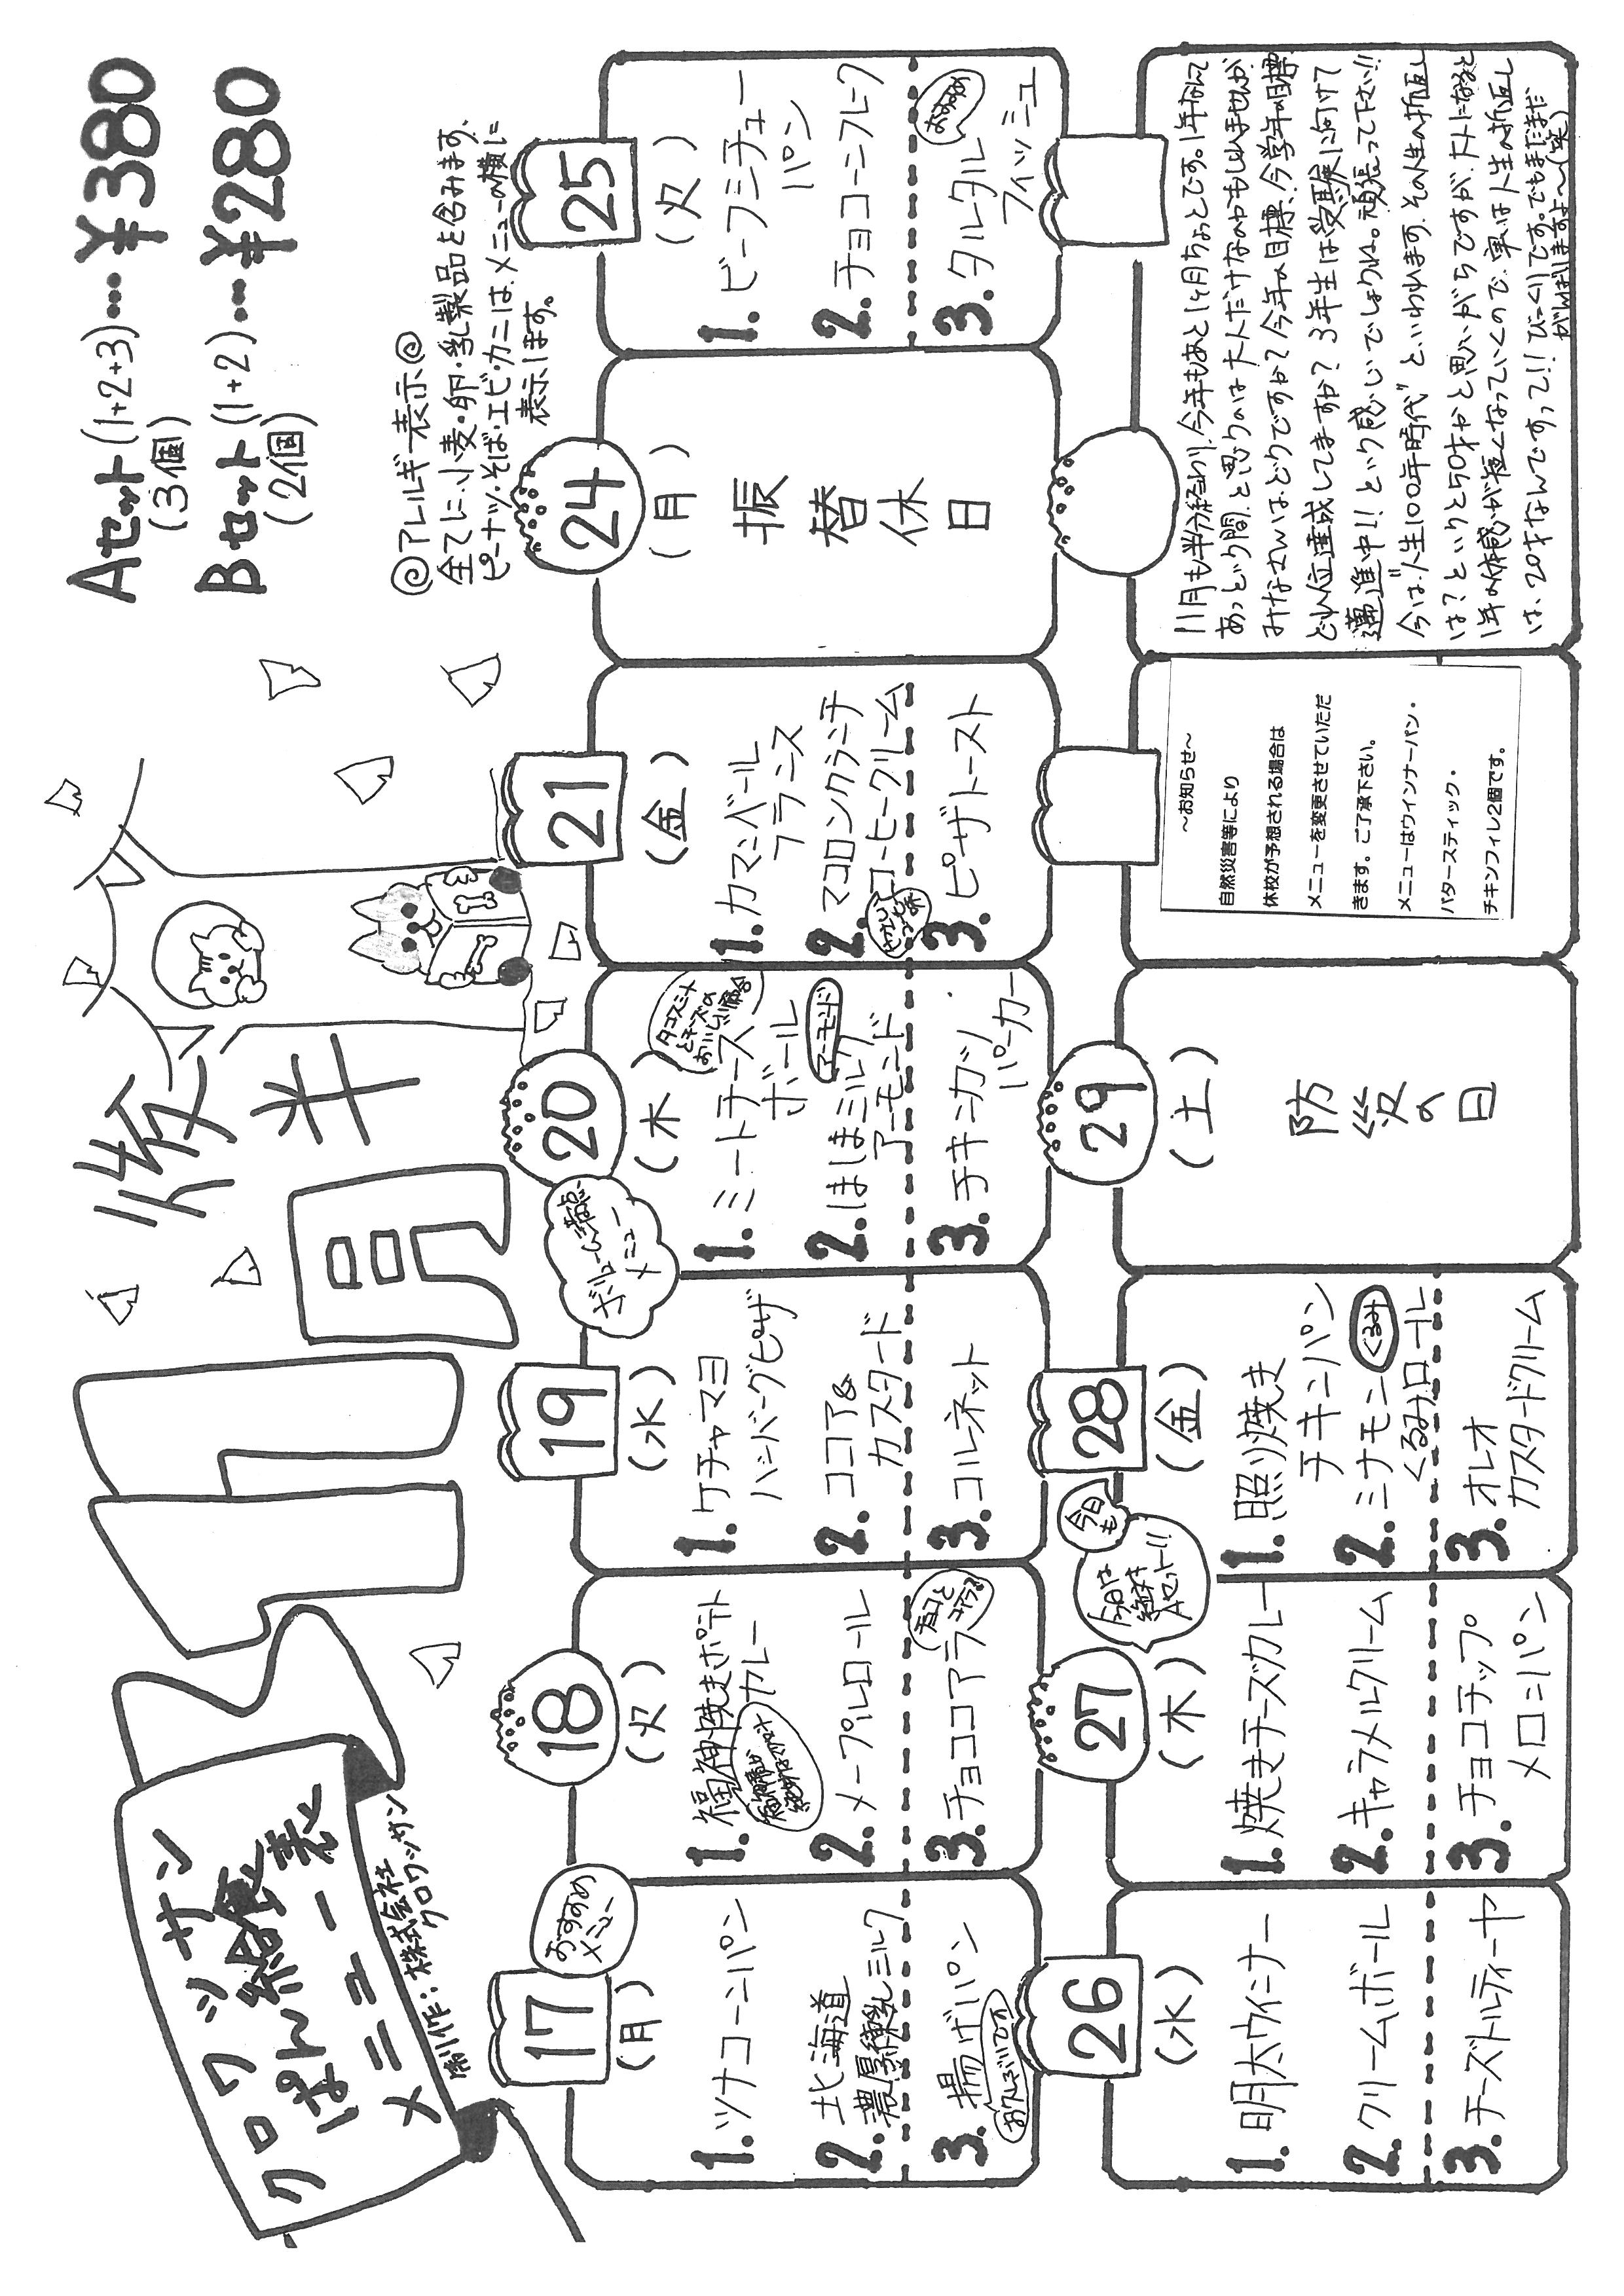 クロワッサン
ぱん給食
メニュー表
制作：株式会社
クロワッサン
11月
後半
Aセット(1+2+3)…¥380
(3個)
Bセット(1+2)…¥280
(2個)
@アレルギー表示@
全てに、小麦・卵・乳製品を含みます、
ピーナッツ・そば・エビ・カニは、メニューの横に
表示します。
17
(月)
おすすめ
メニュー
1.ツナコーンパン
2.北海道
濃厚練乳ミルク
3.揚げパン
18
(火)
1.福神焼きポテト
カレー
2.メープルロール
3.チョココアラ
19
(水)
1.ケチャマヨ
ハンバーグピザ
2.ココア&
カスタード
3.コルネット
ボリューム満点
メニュー
20
(木)
タコスミート
とチーズの
1.ミートチーズ
ボール
アーモンド
2.ほしほしミルク
アーモンド
3.チキンカツ
バーガー
21
(金)
1.カマンベール
フランス
2.マコロンクランチ
コーヒークリーム
3.ピザトースト
24
(月)
振
替
休
日
25
(火)
1.ビーフシチュー
パン
2.チョコーンフレーク
おすすめ
3.タルタル
フィッシュ
26
(水)
1.明太ウインナー
2.クリームボール
3.チーズトルティーヤ
27
(木)
今日は
絶対
Aセット!!
1.焼きチーズカレー
2.キャラメルクリーム
3.チョコチップ
メロンパン
28
(金)
今日
も
1.照り焼き
チキンパン
2.シナモン
くるみ
くるみロール
3.オレオ
カスタードクリーム
29
(土)
防
災
の
日
～お知らせ～
自然災害等により
休校が予想される場合は
メニューを変更させていただ
きます。ご了承下さい。
メニューはウインナーパン・
バタースティック・
チキンフィレ2個です。
11月も半分終わり、今年もあと1ヶ月ちょっとです。1年なんて
あっという間、と思うのは大人だけなのかもしれませんが、
みなさんはどうですか？今年の目標、今学年の目標
どれ位達成してますか？3年生は受験に向けて
邁進中!!という感じでしょうね。頑張って下さい!!
今は“人生100年時代”といわれます。その人生の折返し
は？というと50才かと思いがちですが、大人になると
1年の体感が短くなっていくので、実は人生の折返し
は、20才なんですって!!びっくりです。でもまだまだ
がんばりますよ～(笑)